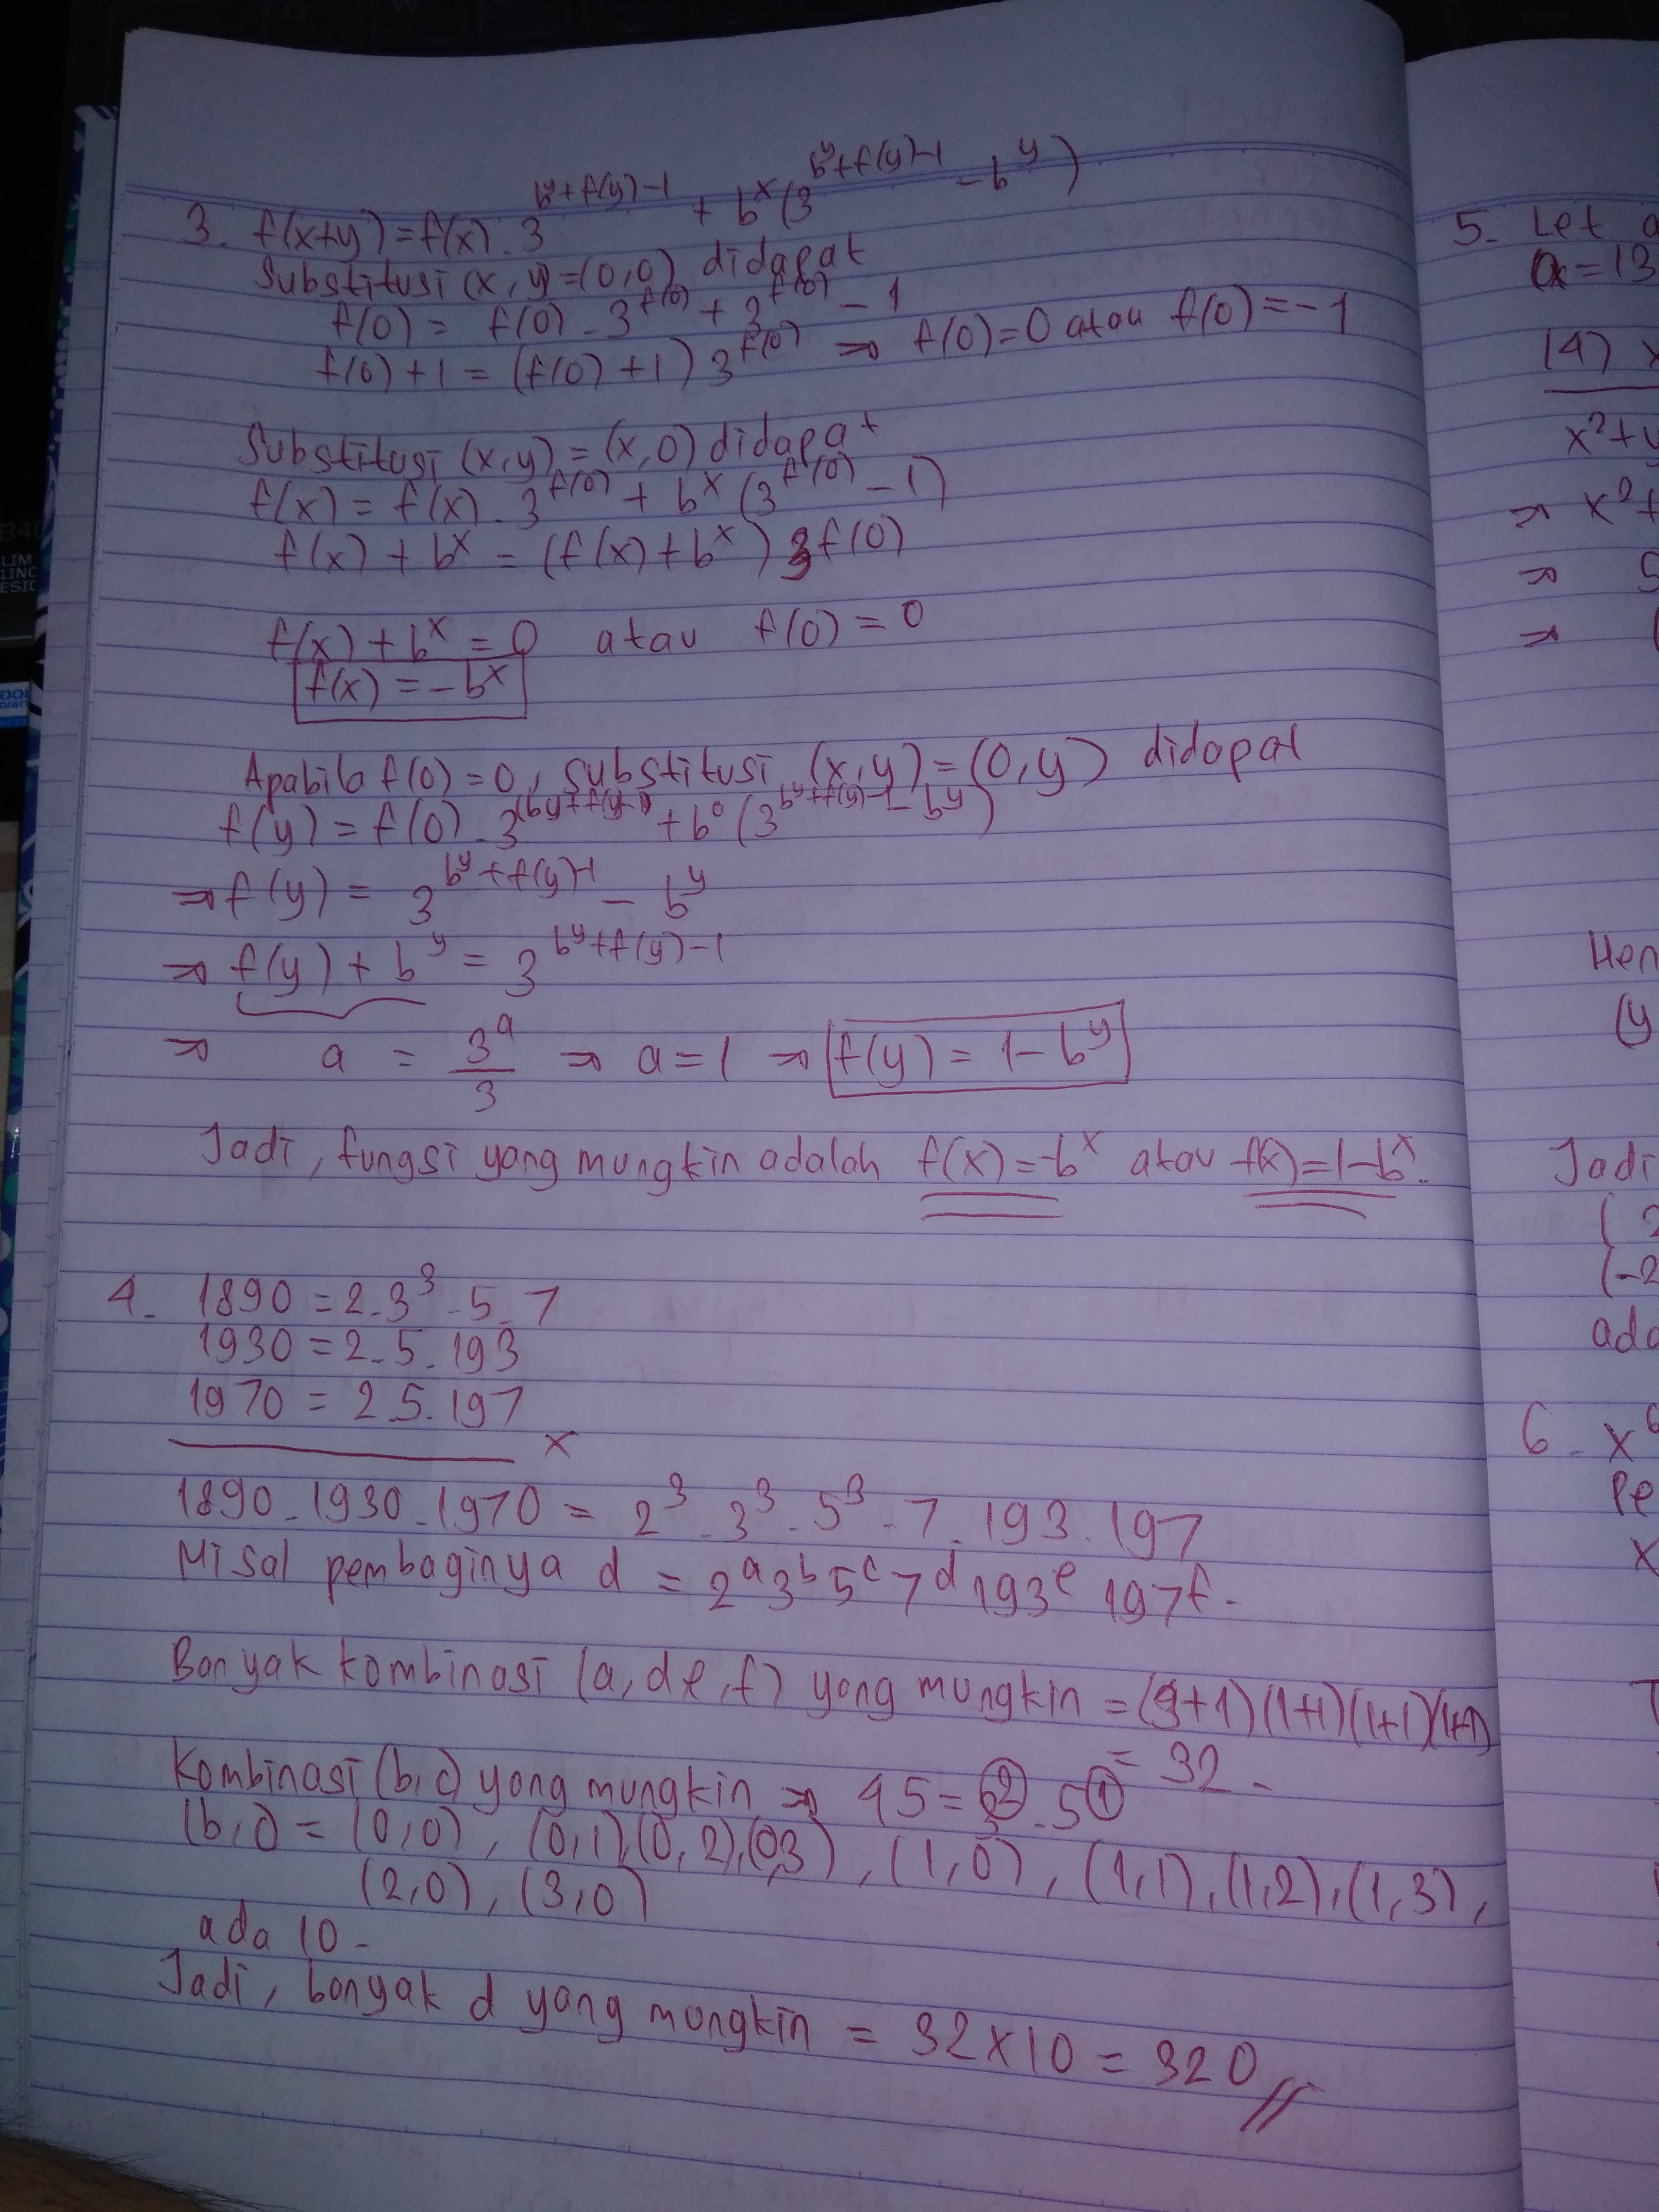 3. f(x+y) = f(x) . 3^(b^y+f(y)-1) + b^x (3^(b^y+f(y)-1) - b^y)
Substitusi (x,y) = (0,0) didapat
f(0) = f(0) . 3^f(0) + 3^f(0) - 1
f(0)+1 = (f(0)+1) 3^f(0) ⇒ f(0)=0 atau f(0)=-1
Substitusi (x,y) = (x,0) didapat
f(x) = f(x) . 3^f(0) + b^x (3^f(0) - 1)
f(x) + b^x = (f(x) + b^x) 3^f(0)
f(x) + b^x = 0 atau f(0) = 0
f(x) = -b^x
Apabila f(0) = 0, substitusi (x,y) = (0,y) didapat
f(y) = f(0) . 3^(b^y+f(y)-1) + b^0 (3^(b^y+f(y)-1) - b^y)
⇒ f(y) = 3^(b^y+f(y)-1) - b^y
⇒ f(y) + b^y = 3^(b^y+f(y)-1)
⇒ a = 3^a/3 ⇒ a=1 ⇒ f(y) = 1-b^y
Jadi, fungsi yang mungkin adalah f(x) = -b^x atau f(x) = 1-b^x.
4. 1890 = 2.3³.5.7
1930 = 2.5.193
1970 = 2.5.197
x
1890.1930.1970 = 2³.3³.5³.7.193.197
Misal pembaginya d = 2^a 3^b 5^c 7^d 193^e 197^f.
Banyak kombinasi (a,d,e,f) yang mungkin = (3+1)(1+1)(1+1)(1+1)
= 32.
Kombinasi (b,c) yang mungkin ⇒ 45 = 3².5¹
(b,c) = (0,0), (0,1), (0,2), (0,3), (1,0), (1,1), (1,2), (1,3),
(2,0), (3,0)
ada 10.
Jadi, banyak d yang mungkin = 32x10 = 320 //
5. Let
a=13
(4) x
x²+y
⇒ x²+
⇒ 5
⇒ (
Hen
(y
Jadi
( 2
(-2
ada
6. x⁶
Pe
x